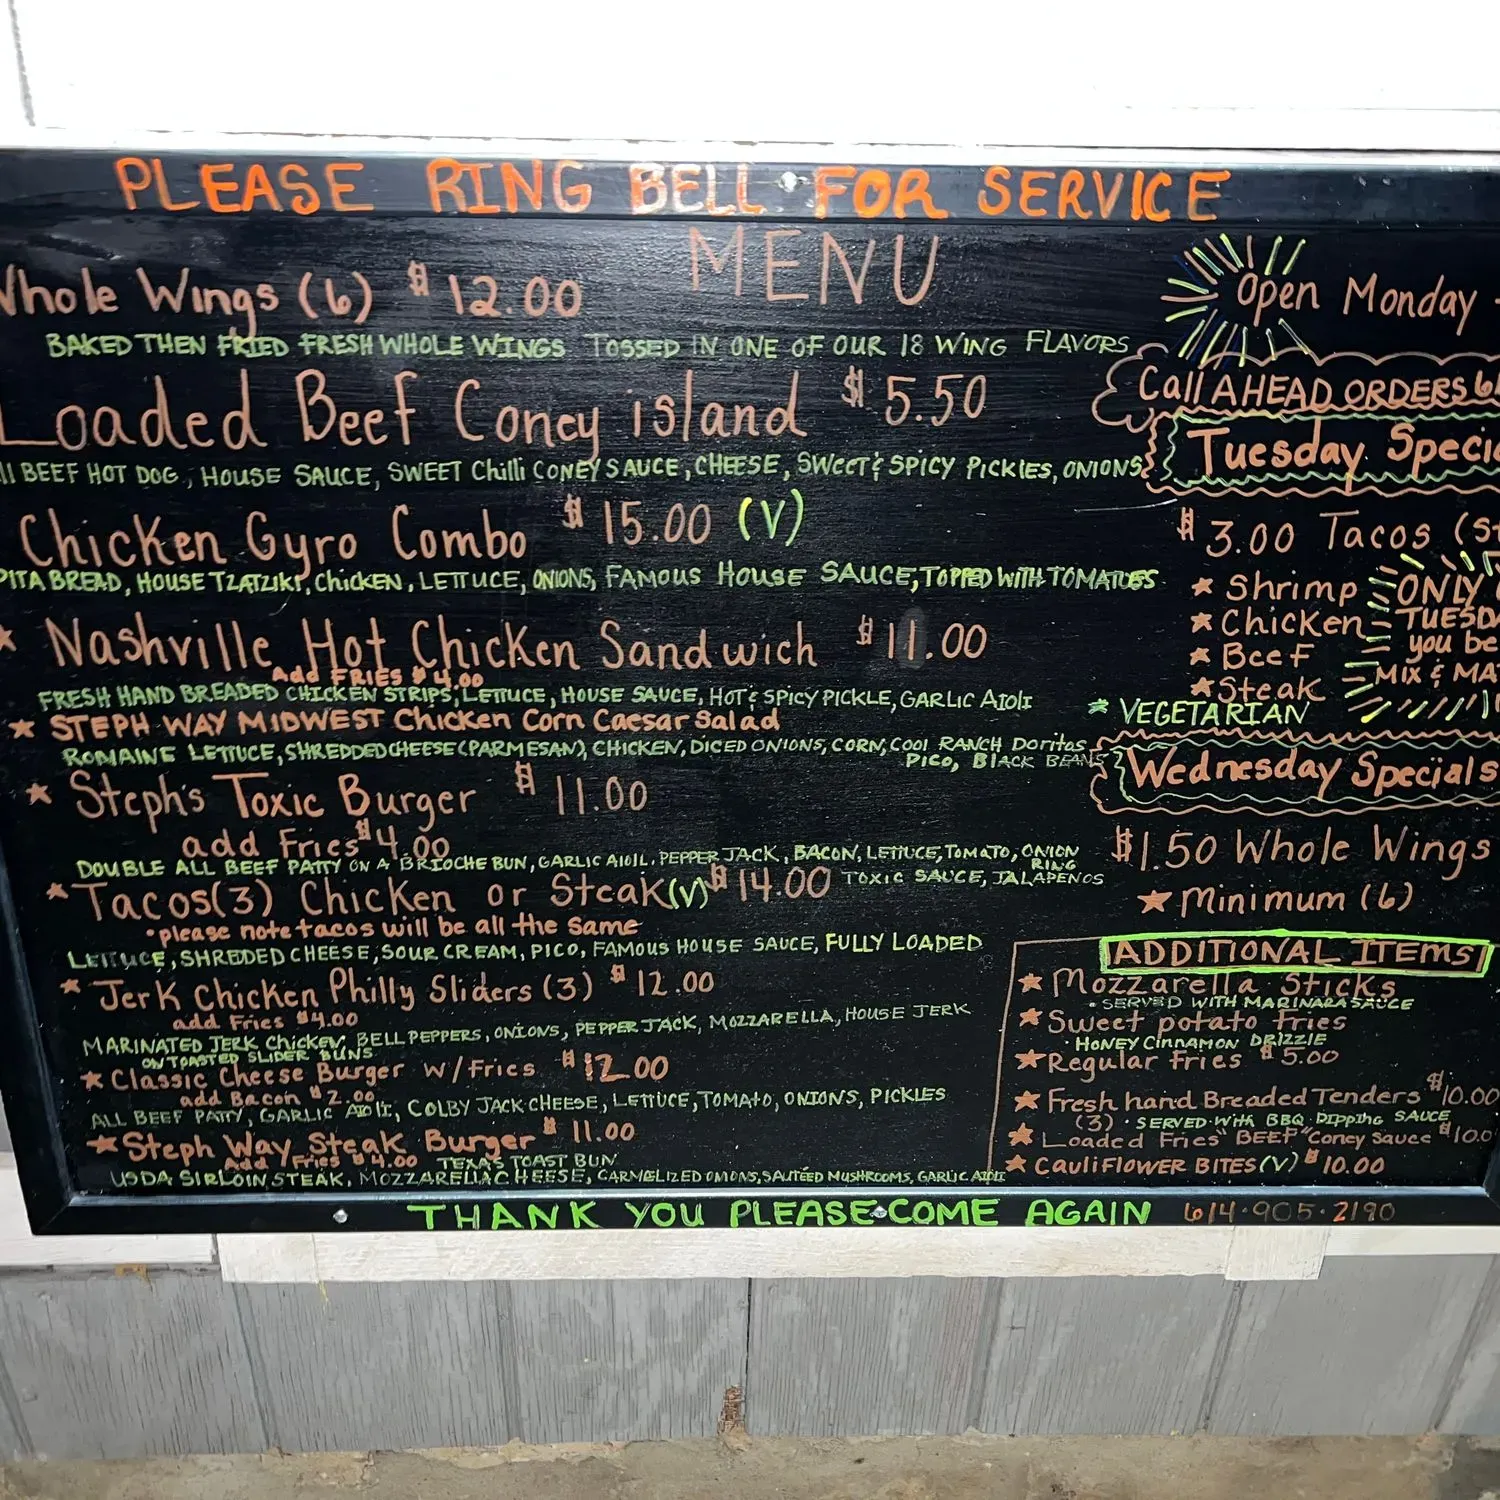 PLEASE RING BELL FOR SERVICE
MENU
Whole Wings (6) $12.00
BAKED THEN FRIED FRESH WHOLE WINGS TOSSED IN ONE OF OUR 18 WING FLAVORS
Loaded Beef Coney island $5.50
All BEEF HOT DOG, HOUSE SAUCE, SWEET Chilli CONEY SAUCE, CHEESE, SWEET & SPICY PICKLES, ONIONS
Chicken Gyro Combo $15.00 (V)
PITA BREAD, HOUSE TZATZIKI, ChicKEN, LETTUCE, ONIONS, FAMOUS HOUSE SAUCE, TOPPED WITH TOMATOES
★ Nashville Hot Chicken Sandwich $11.00
Add FRIES $4.00
FRESH HAND BREADED CHICKEN STRIPS, LETTUCE, HOUSE SAUCE, HOT & SPICY PICKLE, GARLIC AIOLI
★ STEPH WAY MIDWEST Chicken Corn Caesar Salad
ROMAINE LETTUCE, SHREDDED CHEESE (PARMESAN), CHICKEN, DICED ONIONS, CORN, COOl RANCH Doritos
PICO, BLACK BEANS
★ Steph's Toxic Burger $11.00
add Fries $4.00
DOUBLE ALL BEEF PATTY ON A BRIOCHE BUN, GARLIC AIOIL, PEPPER JACK, BACON, LETTUCE, TOMATO, ONION
RING
TOXIC SAUCE, JALAPENOS
★ Tacos(3) Chicken or Steak (V) $14.00
• please note tacos will be all the same
LETTUCE, SHREDDED CHEESE, SOUR CREAM, PICO, FAMOUS HOUSE SAUCE, FULLY LOADED
★ Jerk Chicken Philly Sliders (3) $12.00
add Fries $4.00
MARINATED JERK Chicken, BELL PEPPERS, ONIONS, PEPPER JACK, MOZZARELLA, HOUSE JERK
ON TOASTED SLIDER BUNS
★ Classic Cheese Burger w/Fries $12.00
add Bacon $2.00
ALL BEEF PATTY, GARLIC AIOLI, COLBY JACK CHEESE, LETTUCE, TOMATO, ONIONS, PICKLES
★ Steph Way Steak Burger $11.00
Add Fries $4.00 TEXAS TOAST BUN
USDA SIRLOIN STEAK, MOZZARELLA CHEESE, CARMELIZED ONIONS, SAUTEED MUSHROOMS, GARLIC AIOLI
Open Monday -
Call AHEAD ORDERS
Tuesday
$3.00 Tacos
★ Shrimp
★ Chicken
★ Beef
★ Steak
ONLY
you
MIX &
* VEGETARIAN
Wednesday Specials
$1.50 Whole Wings
★ Minimum (6)
ADDITIONAL ITEMS
★ Mozzarella Sticks
• SERVED WITH MARINARA SAUCE
★ Sweet potato Fries
• HONEY CINNAMON DRIZZlE
★ Regular Fries $5.00
★ Fresh hand Breaded Tenders $10.00
(3) • SERVED WITH BBQ DIPPING SAUCE
★ Loaded Fries "BEEF" Coney Sauce
★ CAULIFLOWER BITES (V) $10.00
THANK YOU PLEASE COME AGAIN 614•905•2190